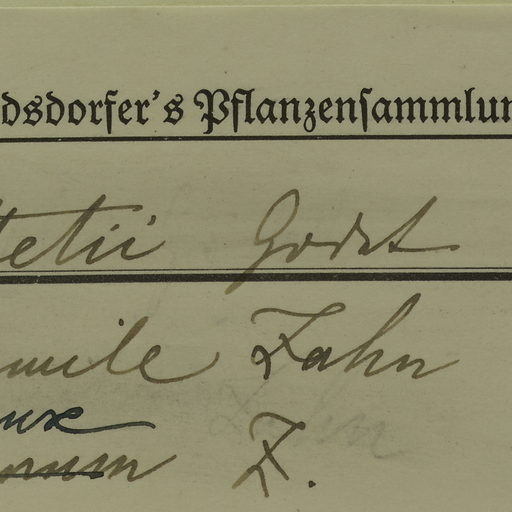 dsdorfer's Pflanzensammlun
tetii Godet
mile Zahn
Z.